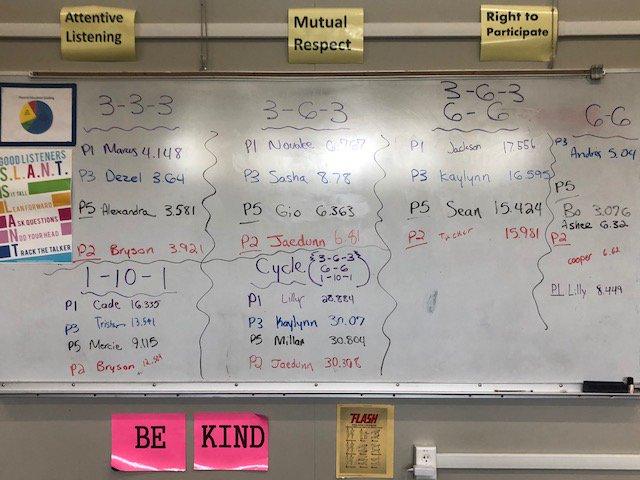 Attentive
Listening
Mutual
Respect
Right to
Participate
3-3-3
P1 Marus 4.148
P3 Dezel 3.64
P5 Alexandra 3.581
P2 Bryson 3.921
3-6-3
P1 6.767
P3 Sasha 8.78
P5 Gio 6.363
P2 Jaedunn 6.81
3-6-3
6-6
P1 Jackson 17.556
P3 Kaylynn 16.595
P5 Sean 15.424
P2 Tucker 15.981
6-6
P3 Andres 5.04
P5
Bo 3.076
Ashee 6.32
P2
cooper 6.62
P1 Lilly 8.449
1-10-1
P1 Cade 16.335
P3 Tristan 13.541
P5 Mercie 9.115
P2 Bryson
Cycle
3-6-3
6-6
1-10-1
P1 Lilly 28.884
P3 Kaylynn 30.07
P5 Millan 30.804
P2 Jaedunn 30.308
GOOD LISTENERS
S.L.A.N.T.
SIT TALL
LEAN FORWARD
ASK QUESTIONS
NOD YOUR HEAD
TRACK THE TALKER
BE
KIND
FLASH